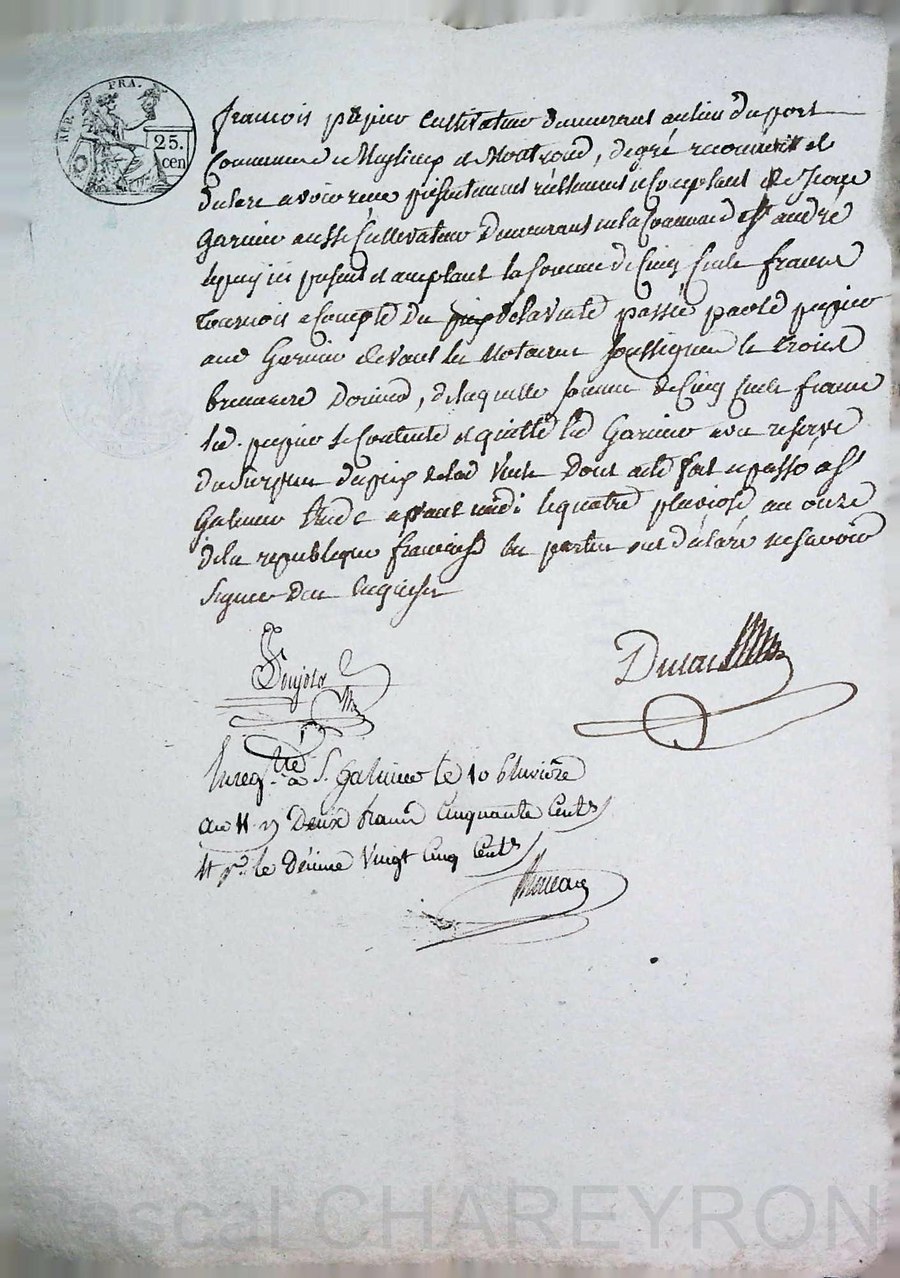 REP. FRA.
25.
cen
françois pepier Cultivateur demeurant au lieu du port
Commune de Meylieu et Montrond, de gré reconnoit et
declare avoir reçu présentement réellement et comptant de
Garnier aussi Cultivateur demeurant en la Commune de St andré
le puy ici présent et acceptant la somme de Cinq Cents francs
tournois a Compte du prix de la vente passée par led pepier
aud Garnier devant les Notaires soussignés le trois
brumaire dernier, de laquelle somme de Cinq Cents francs
led. pepier se Contente et quitte led Garnier avec reserve
du surplus du prix de lad vente dont acte fait et passé a St
Galmier Etude avant midi le quatre pluviose an onze
de la republique française les parties ont déclaré ne savoir
signer de ce enquises
Enregtré a St. Galmier le 10 Pluviose
an 11 Deux francs Cinquante Cents
pr. le Décime Vingt Cinq Cents
Pascal CHAREYRON